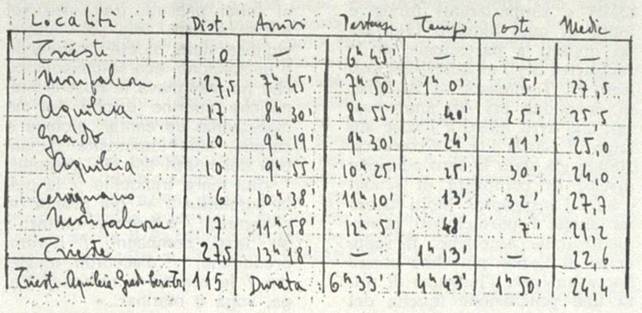 Località Dist. Arrivi Partenze Tempo Soste Medie
Trieste 0 — 6h 45' — — —
Monfalcone 27,5 7h 45' 7h 50' 1h 0' 5' 27,5
Aquileia 17 8h 30' 8h 55' 40' 25' 25,5
Grado 10 9h 19' 9h 30' 24' 11' 25,0
Aquileia 10 9h 55' 10h 25' 25' 30' 24,0
Cervignano 6 10h 38' 11h 10' 13' 32' 27,7
Monfalcone 17 11h 58' 12h 5' 48' 7' 21,2
Trieste 27,5 13h 18' — 1h 13' — 22,6
Trieste-Aquileia-Grado-Cerv-Tr. 115 Durata 6h 33' 4h 43' 1h 50' 24,4